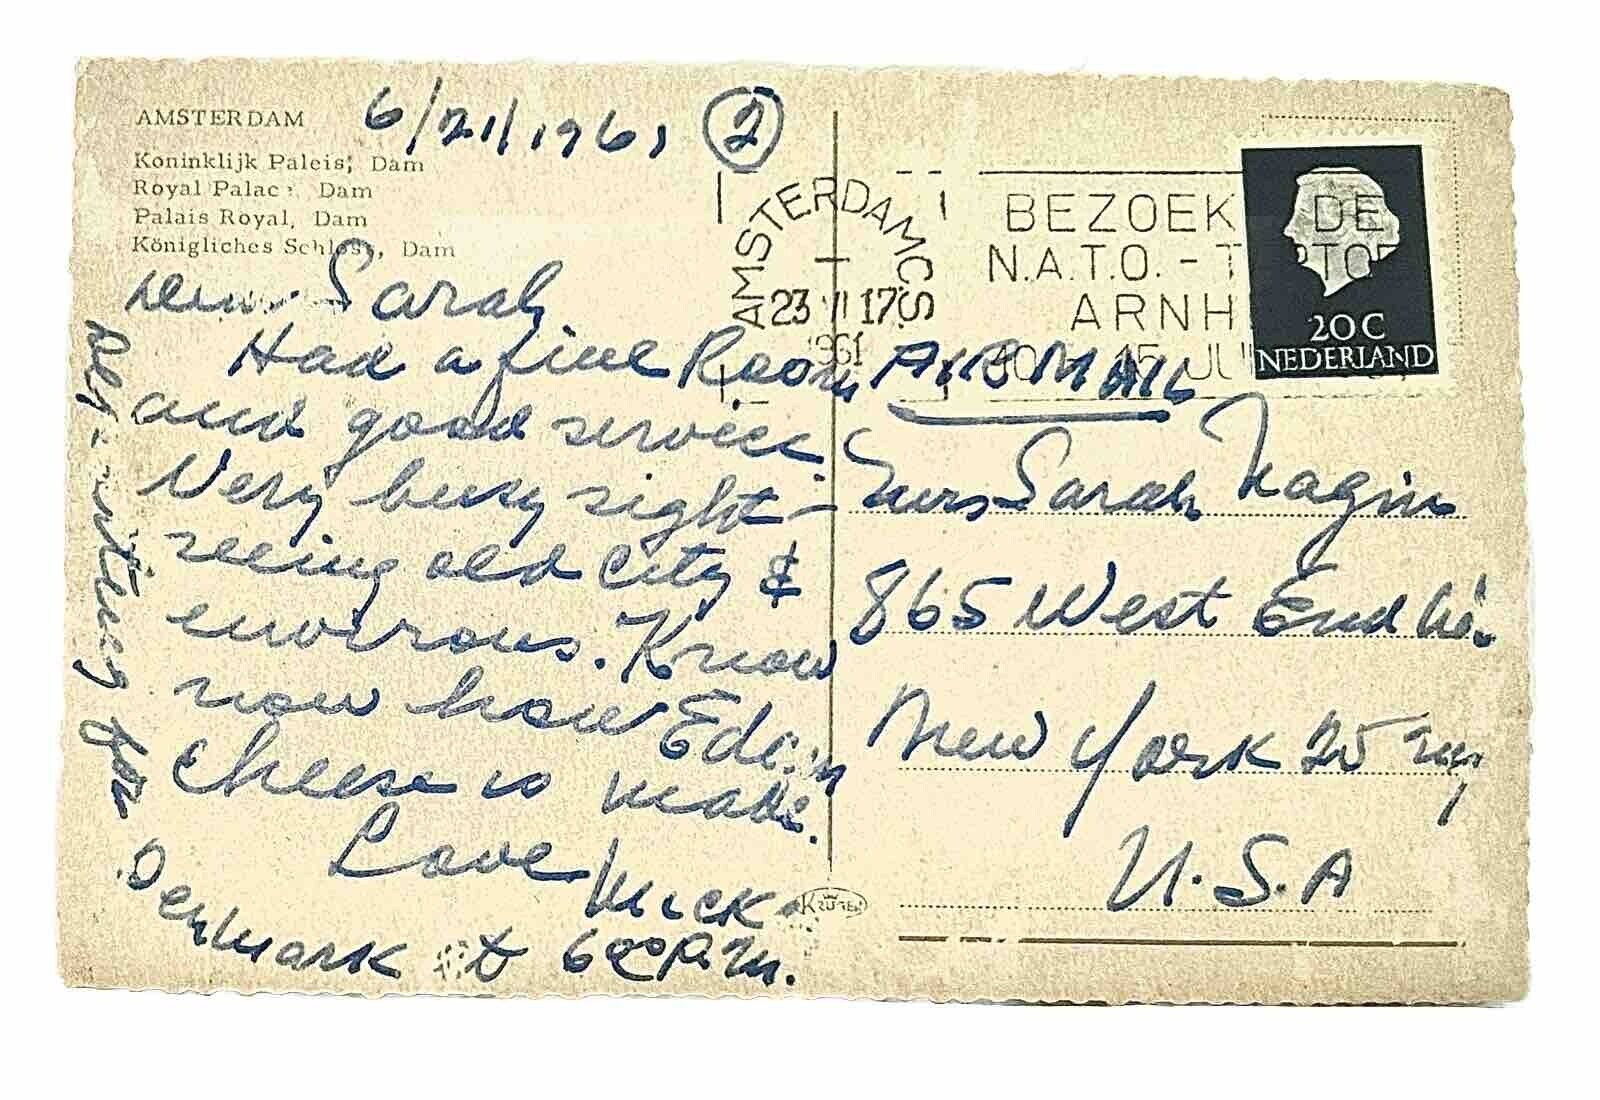 AMSTERDAM
6/21/1961 2
Koninklijk Paleis, Dam
Royal Palace, Dam
Palais Royal, Dam
Königliches Schloss, Dam
Dear Sarah
Had a fine Room
and good service.
Very busy sight-
seeing old city &
environs. Know
now how Edam
cheese is made.
Love Mick
for
Denmark at 6 00 P.M.
AMSTERDAM C.S.
23 VI 17
1961
BEZOEK DE
N.A.T.O. - T PTOE
ARNH
15 JU
20 C
NEDERLAND
AIR MAIL
Mrs Sarah Nagin
865 West End Av.
New York 25 NY
U.S.A
KRÜGER